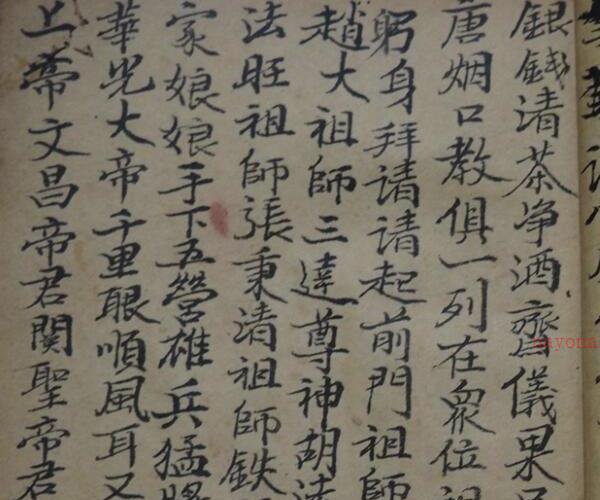 銀錢清茶净酒齋儀果
唐烟口教俱一列在衆位祖
躬身拜請請起前門祖師
趙大祖師三達尊神胡法
法旺祖師張秉清祖師鉄
家娘娘手下五營雄兵猛將
華光大帝千里眼順風耳又
上帝文昌帝君関聖帝君